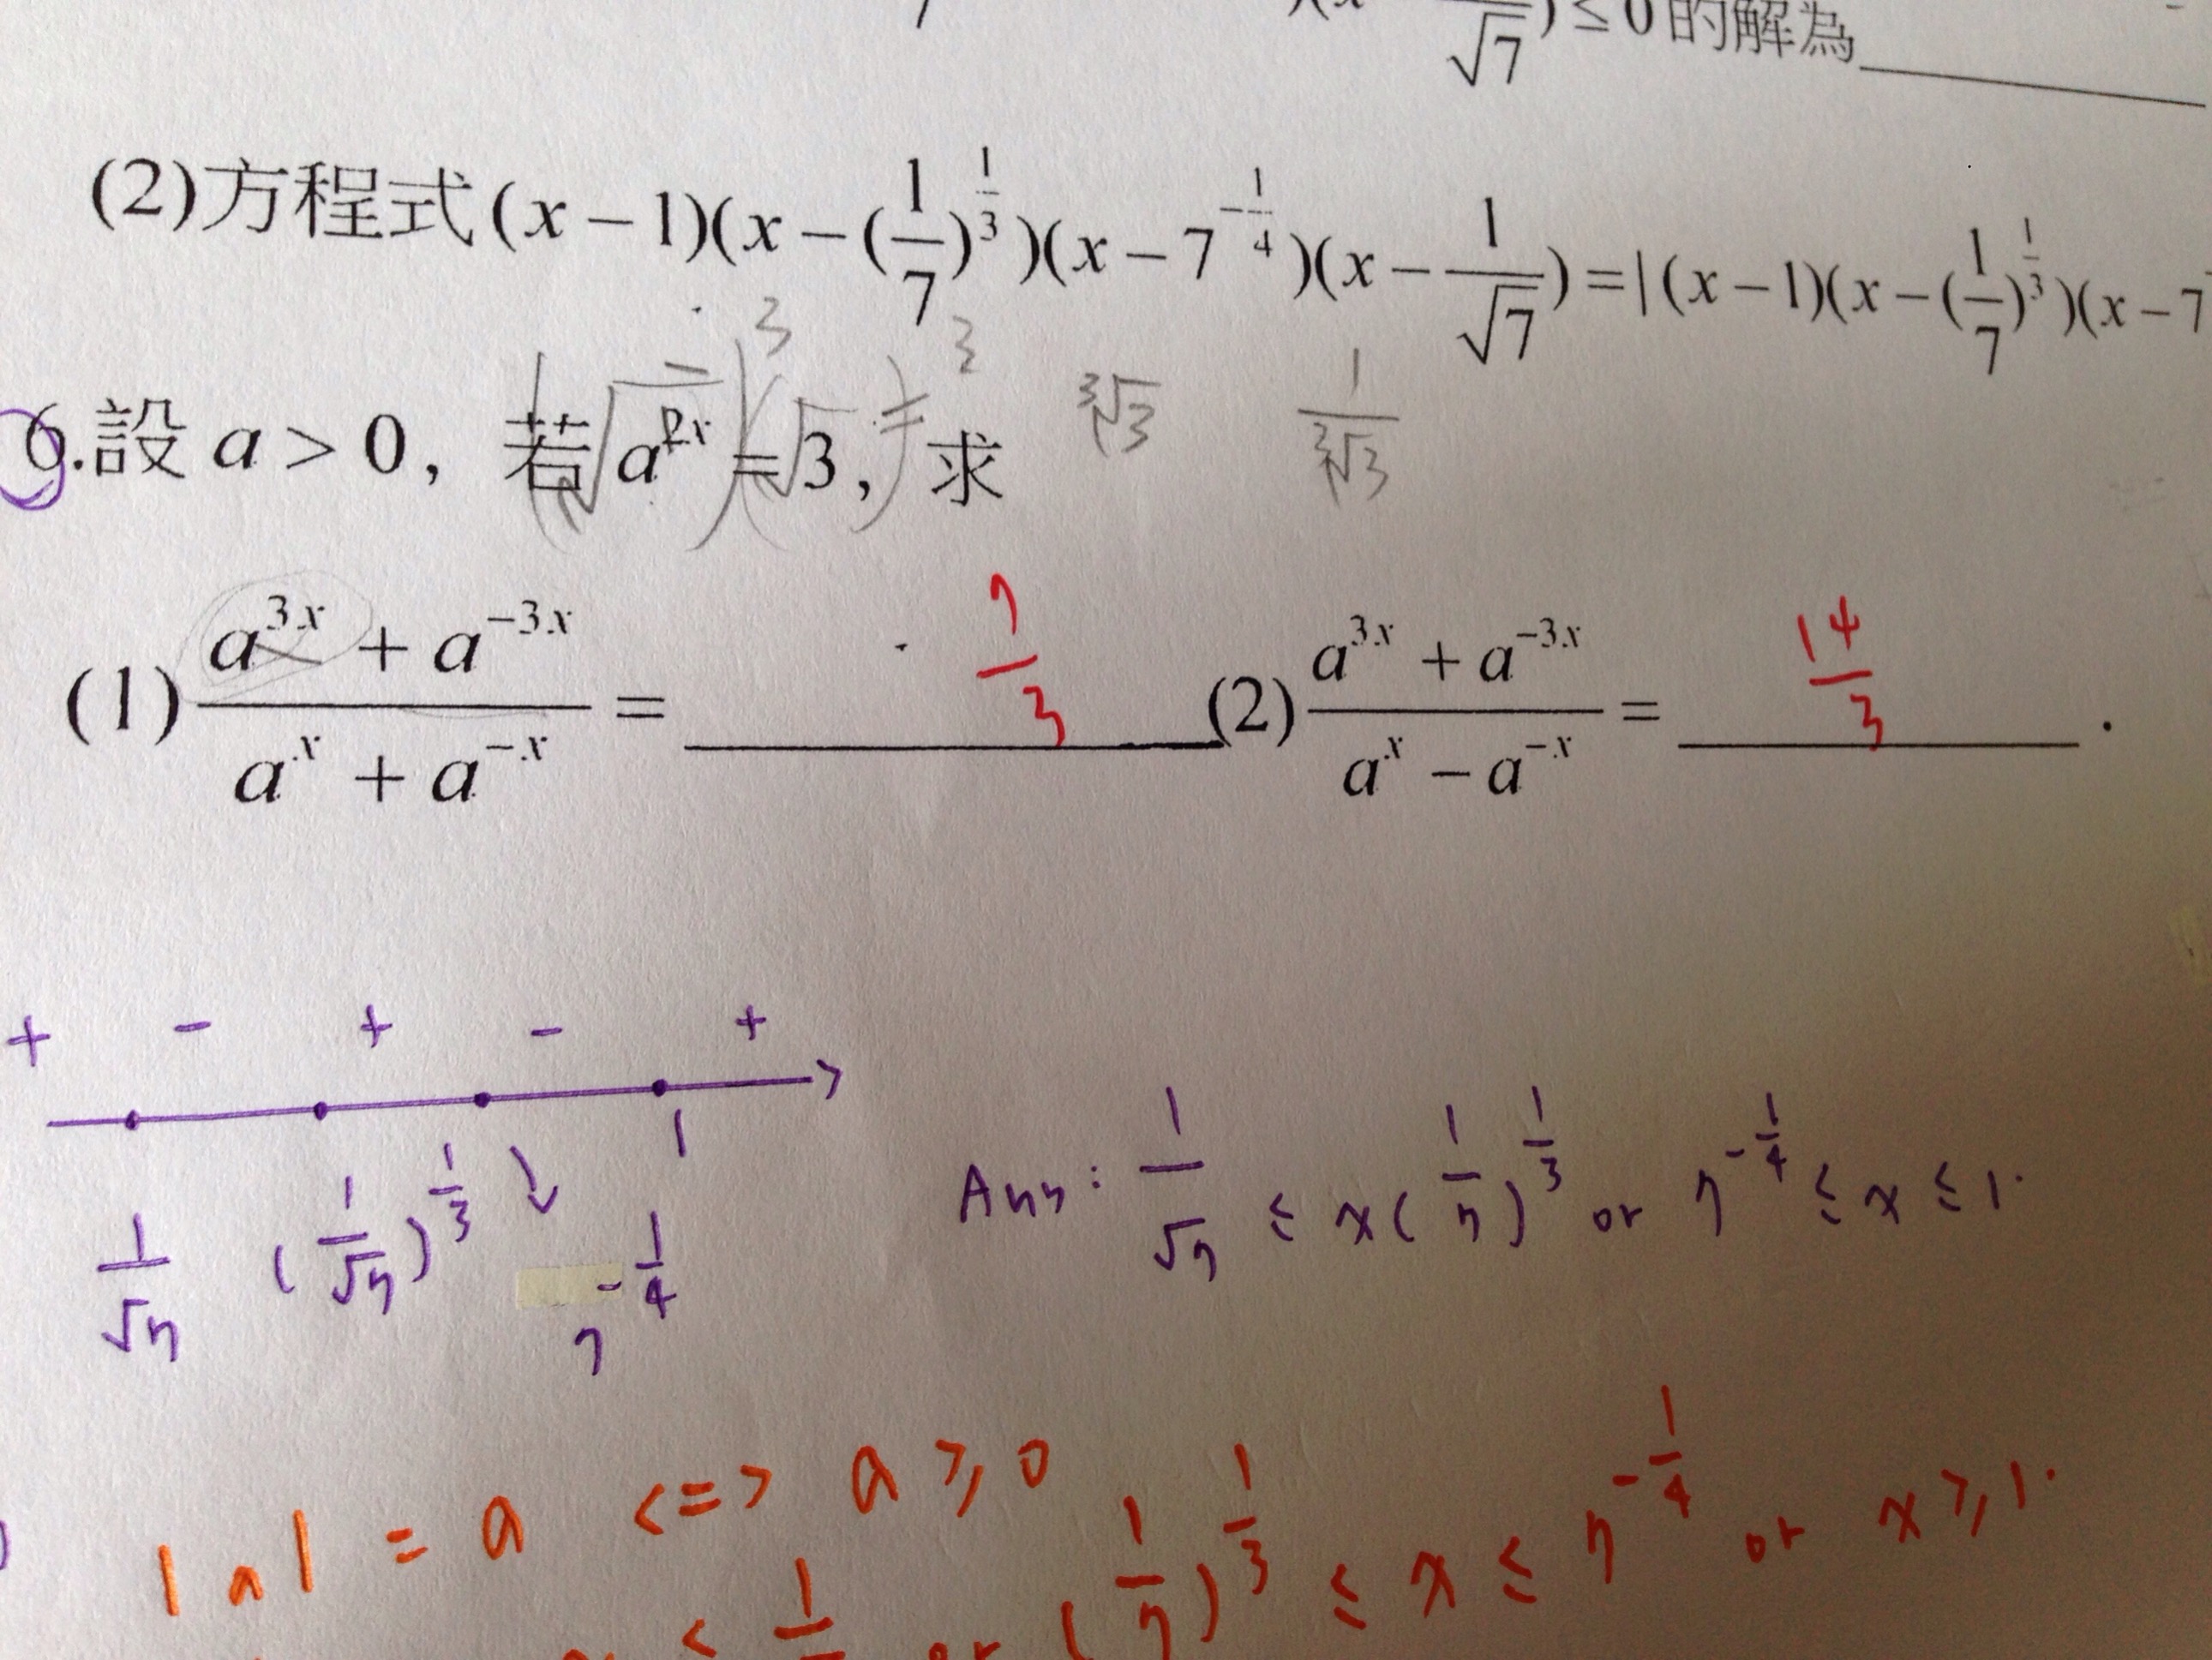 √7) ≤ 0 的解為
(2)方程式(x−1)(x−(1/7)^(1/3))(x−7^(−1/4))(x−1/√7)=|(x−1)(x−(1/7)^(1/3))(x−7
3 3
6.設 a > 0, 若 a^(2x) = 3, 求 ³√3 1/³√3
(1) (a^(3x) + a^(−3x))/(a^x + a^(−x)) = 7/3 (2) (a^(3x) + a^(−3x))/(a^x − a^(−x)) = 14/3 .
+ − + − +
1/√7 (1/√7)^(1/3) 7^(−1/4) 1
Ans: 1/√7 ≤ x(1/7)^(1/3) or 7^(−1/4) ≤ x ≤ 1.
|a| = a <=> a ≥ 0
or (1/7)^(1/3) ≤ x ≤ 7^(−1/4) or x ≥ 1.